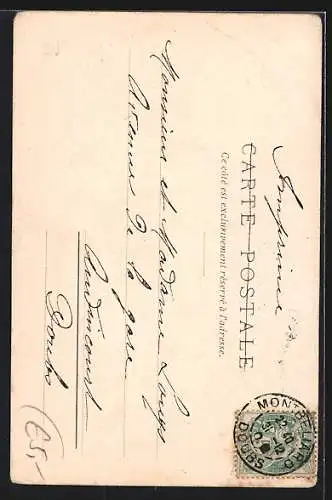 Imprimé
CARTE POSTALE
Ce côté est exclusivement réservé à l'adresse.
Monsieur et Madame Louys
Avenue de la gare
Audincourt
Doubs
MONTBELIARD
DOUBS